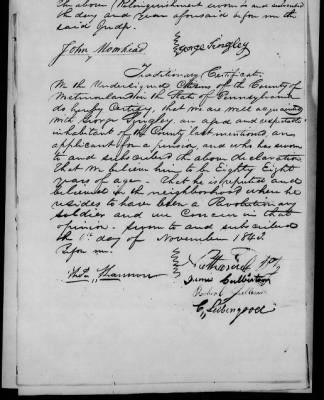 the above Relinquishment sworn to and subscribed
the day and year aforesaid before me the
said Judge.
John Moorhead
George Tingley
Traditionary Certificate.
We the Undersigned Citizens of the County of
Westmoreland in the State of Pennsylvania
do hereby Certify, that we are well acquainted
with George Tingley, an aged and respectable
inhabitant of the County last mentioned, an
applicant for a pension, and who has sworn
to and subscribed the above declaration
that we believe him to be Eighty Eight
years of age. That he is reputed and
believed in the neighborhood where he
resides to have been a Revolutionary
soldier and we Concur in that
opinion. Sworn to and subscribed
the 1st day of November 1843.
before me.
Shannon
James Culbertson
Robert
C. Livengood